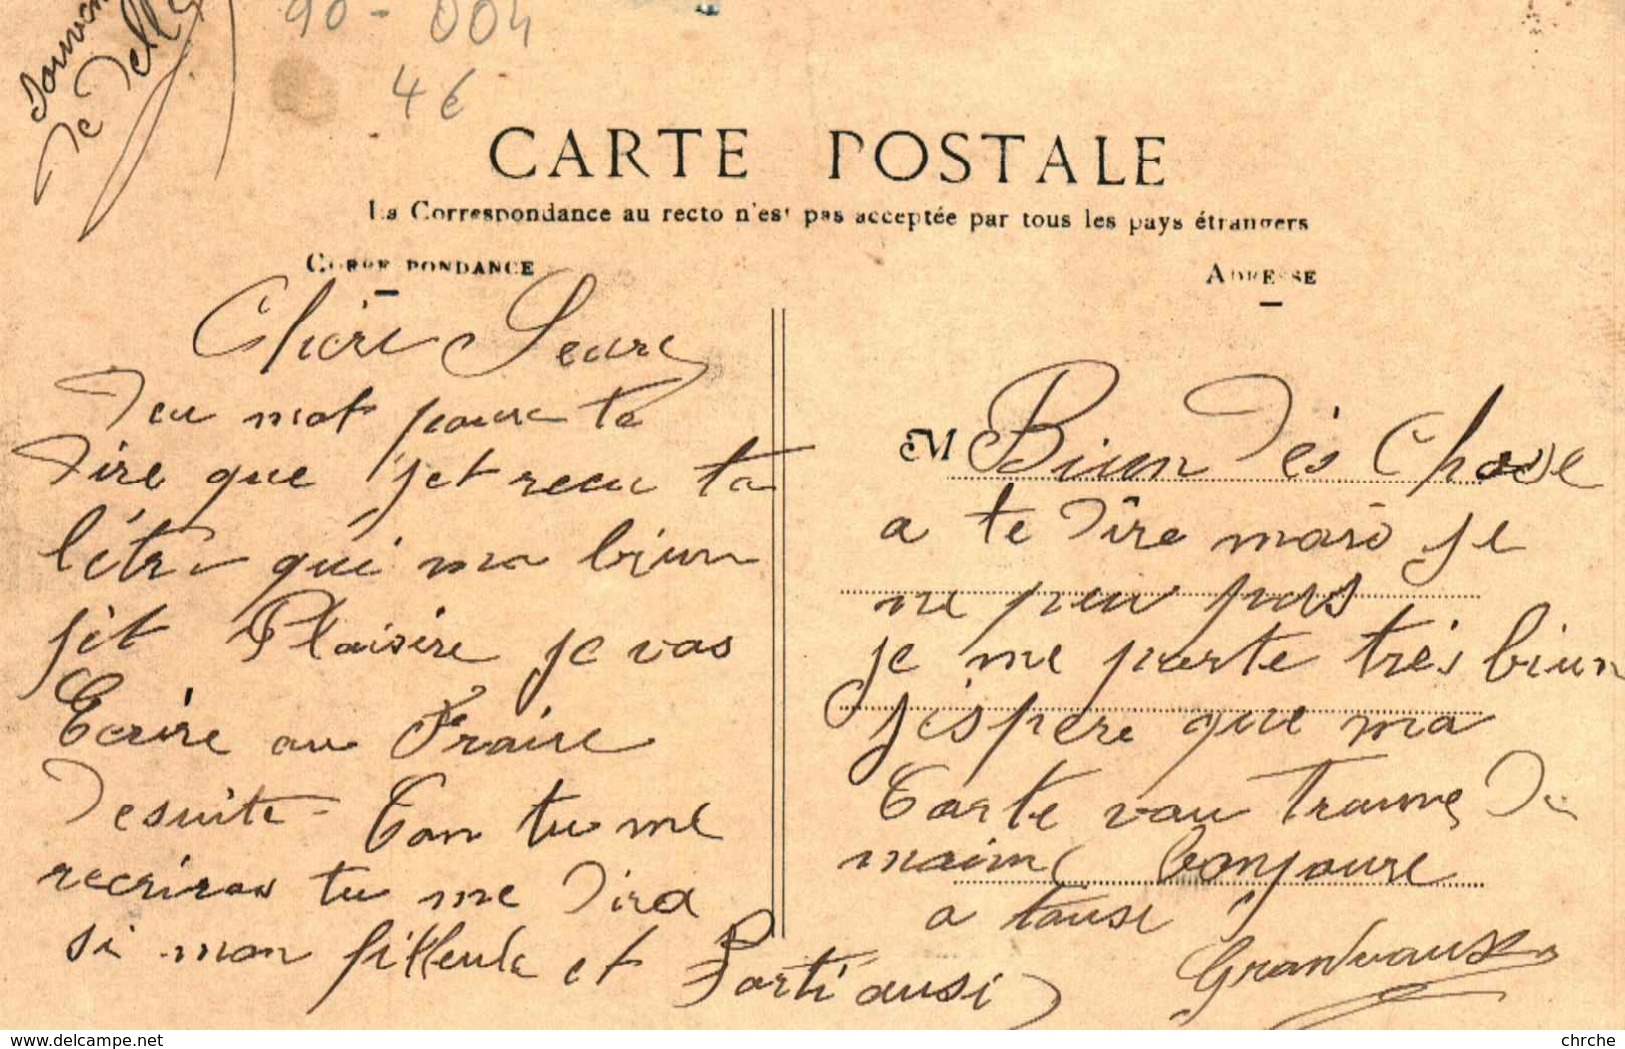 Souvenir
de Delle
90-004
4€
CARTE POSTALE
La Correspondance au recto n'est pas acceptée par tous les pays étrangers
CORRESPONDANCE
ADRESSE
Chére Seure
Deu mot poure te
Dire que jet recu ta
létre qui ma biun
fêt Plaisire je vas
Ecrire au Fraire
desuite Can tu me
recriras tu me dira
si mon filleule et Parti ausi
M Biuen Dès Chose
a te dire mais je
ne peu pas
je me porte très biun
j'éspére que ma
Carte vou trouve de
maime bonjoure
a touse
Grandvaux
www.delcampe.net
chrche